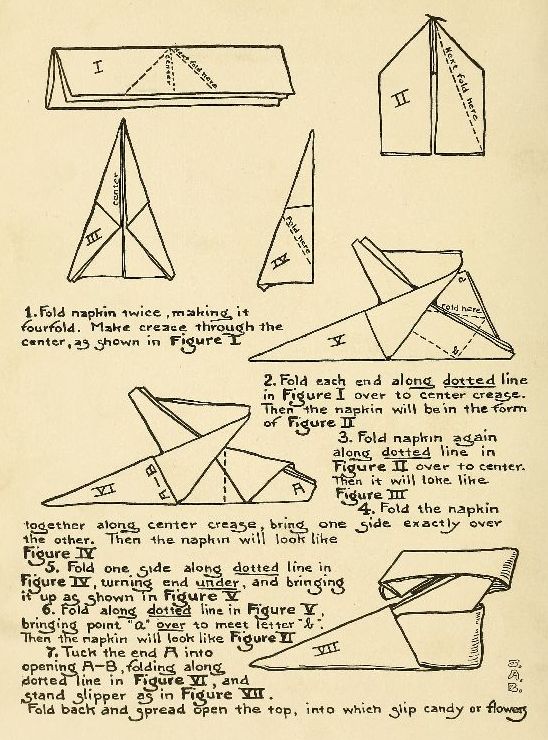 I
center
crease
next fold here
II
Next fold here
III
center
IV
Fold here
1. Fold napkin twice, making it
fourfold. Make crease through the
center, as shown in Figure I
V
a
Fold here
b
2. Fold each end along dotted line
in Figure I over to center crease.
Then the napkin will be in the form
of Figure II
3. Fold napkin again
along dotted line in
Figure II over to center.
Then it will loke like
Figure III
VI
A-B
A
4. Fold the napkin
together along center crease, bring one side exactly over
the other. Then the napkin will look like
Figure IV
5. Fold one side along dotted line in
Figure IV, turning end under, and bringing
it up as shown in Figure V
6. Fold along dotted line in Figure V,
bringing point "a" over to meet letter "b".
Then the napkin will look like Figure VI
7. Tuck the end A into
opening A-B, folding along
dotted line in Figure VI, and
stand slipper as in Figure VII.
Fold back and spread open the top, into which slip candy or flowers
VII
S.
A.
B.